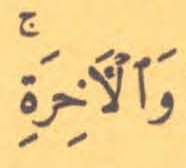 وَٱلْأَخِرَةِۚ